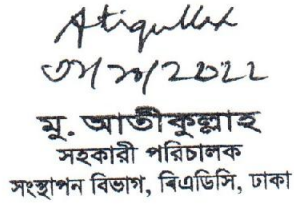 Atiqullah
মু. আতীকুল্লাহ
সহকারী পরিচালক
সংস্থাপন বিভাগ, বিএডিসি, ঢাকা